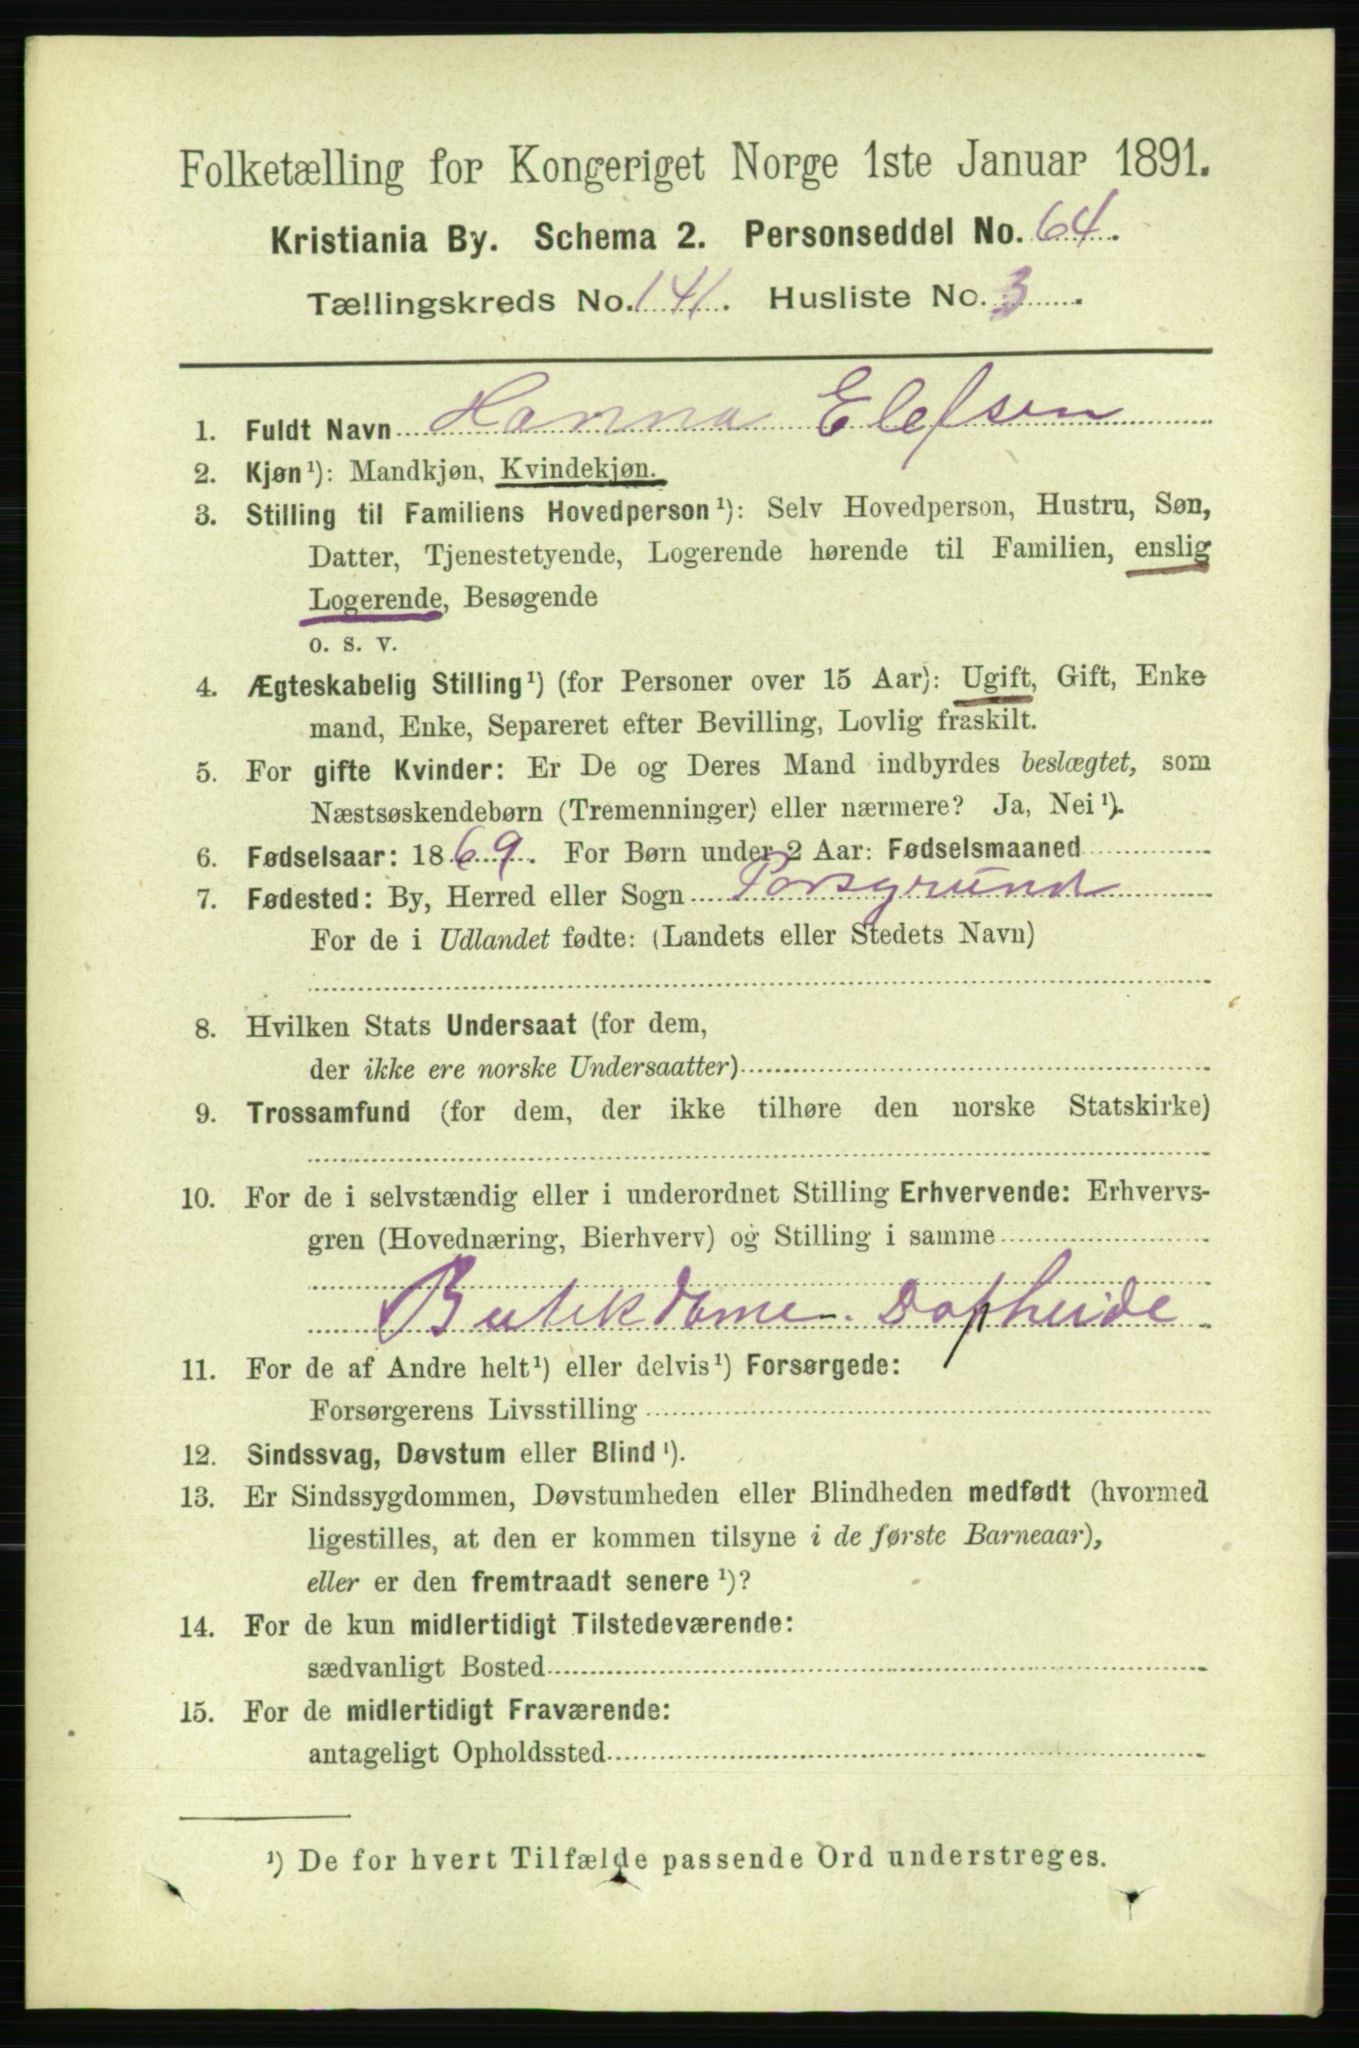 Folketælling for Kongeriget Norge 1ste Januar 1891.
Kristiania By. Schema 2. Personseddel No. 64.
Tællingskreds No. 141. Husliste No. 3.
1. Fuldt Navn Hanna Elefsen
2. Kjøn¹): Mandkjøn, Kvindekjøn.
3. Stilling til Familiens Hovedperson¹): Selv Hovedperson, Hustru, Søn,
Datter, Tjenestetyende, Logerende hørende til Familien, enslig
Logerende, Besøgende
o. s. v.
4. Ægteskabelig Stilling¹) (for Personer over 15 Aar): Ugift, Gift, Enke
mand, Enke, Separeret efter Bevilling, Lovlig fraskilt.
5. For gifte Kvinder: Er De og Deres Mand indbyrdes beslægtet, som
Næstsøskendebørn (Tremenninger) eller nærmere? Ja, Nei¹).
6. Fødselsaar: 1869. For Børn under 2 Aar: Fødselsmaaned
7. Fødested: By, Herred eller Sogn Porsgrund
For de i Udlandet fødte: (Landets eller Stedets Navn)
8. Hvilken Stats Undersaat (for dem,
der ikke ere norske Undersaatter)
9. Trossamfund (for dem, der ikke tilhøre den norske Statskirke)
10. For de i selvstændig eller i underordnet Stilling Erhvervende: Erhvervs-
gren (Hovednæring, Bierhverv) og Stilling i samme
Butikdame.
11. For de af Andre helt¹) eller delvis¹) Forsørgede:
Forsørgerens Livsstilling
12. Sindssvag, Døvstum eller Blind¹).
13. Er Sindssygdommen, Døvstumheden eller Blindheden medfødt (hvormed
ligestilles, at den er kommen tilsyne i de første Barneaar),
eller er den fremtraadt senere¹)?
14. For de kun midlertidigt Tilstedeværende:
sædvanligt Bosted
15. For de midlertidigt Fraværende:
antageligt Opholdssted
¹) De for hvert Tilfælde passende Ord understreges.